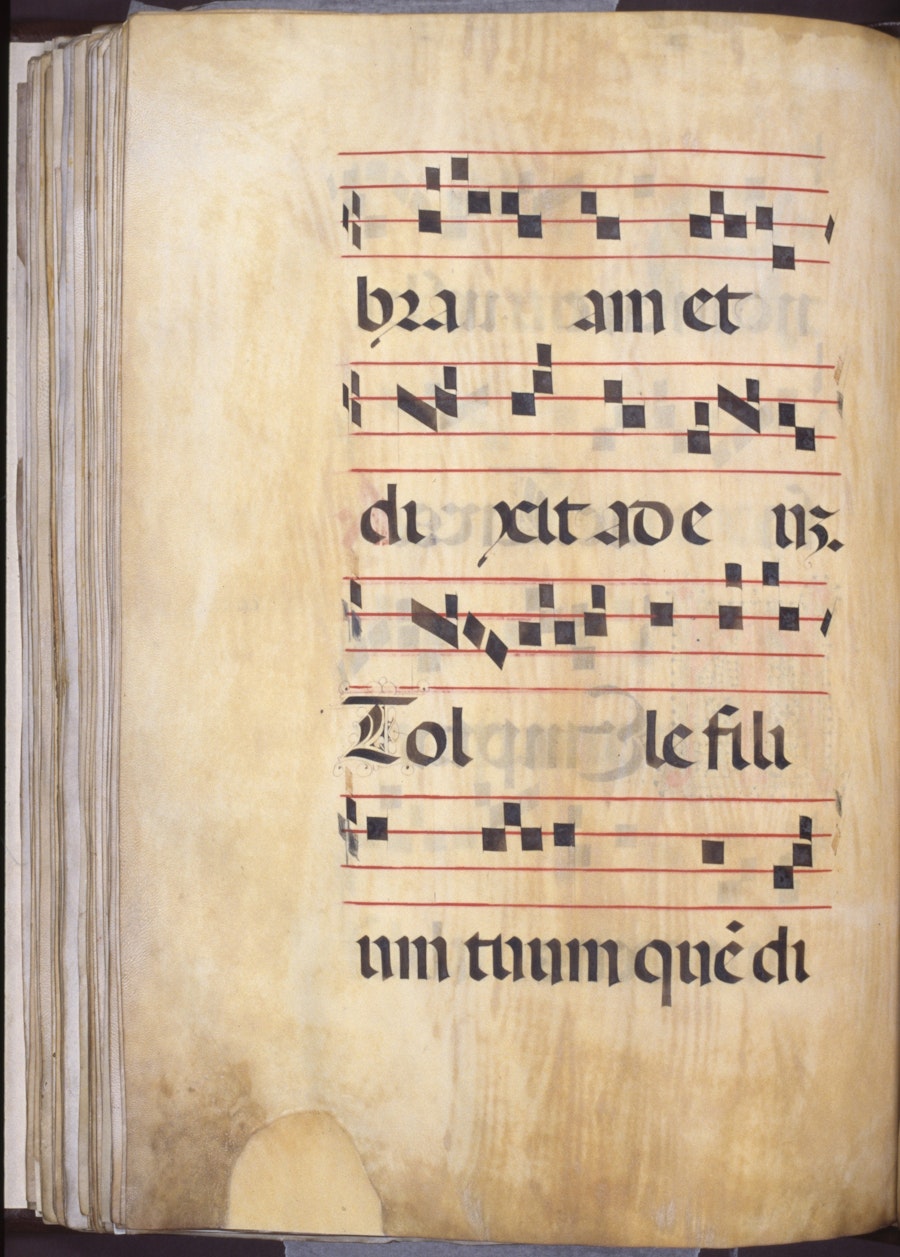 bra am et
di xit ad e uʒ.
Tol le fili
um tuum quē di